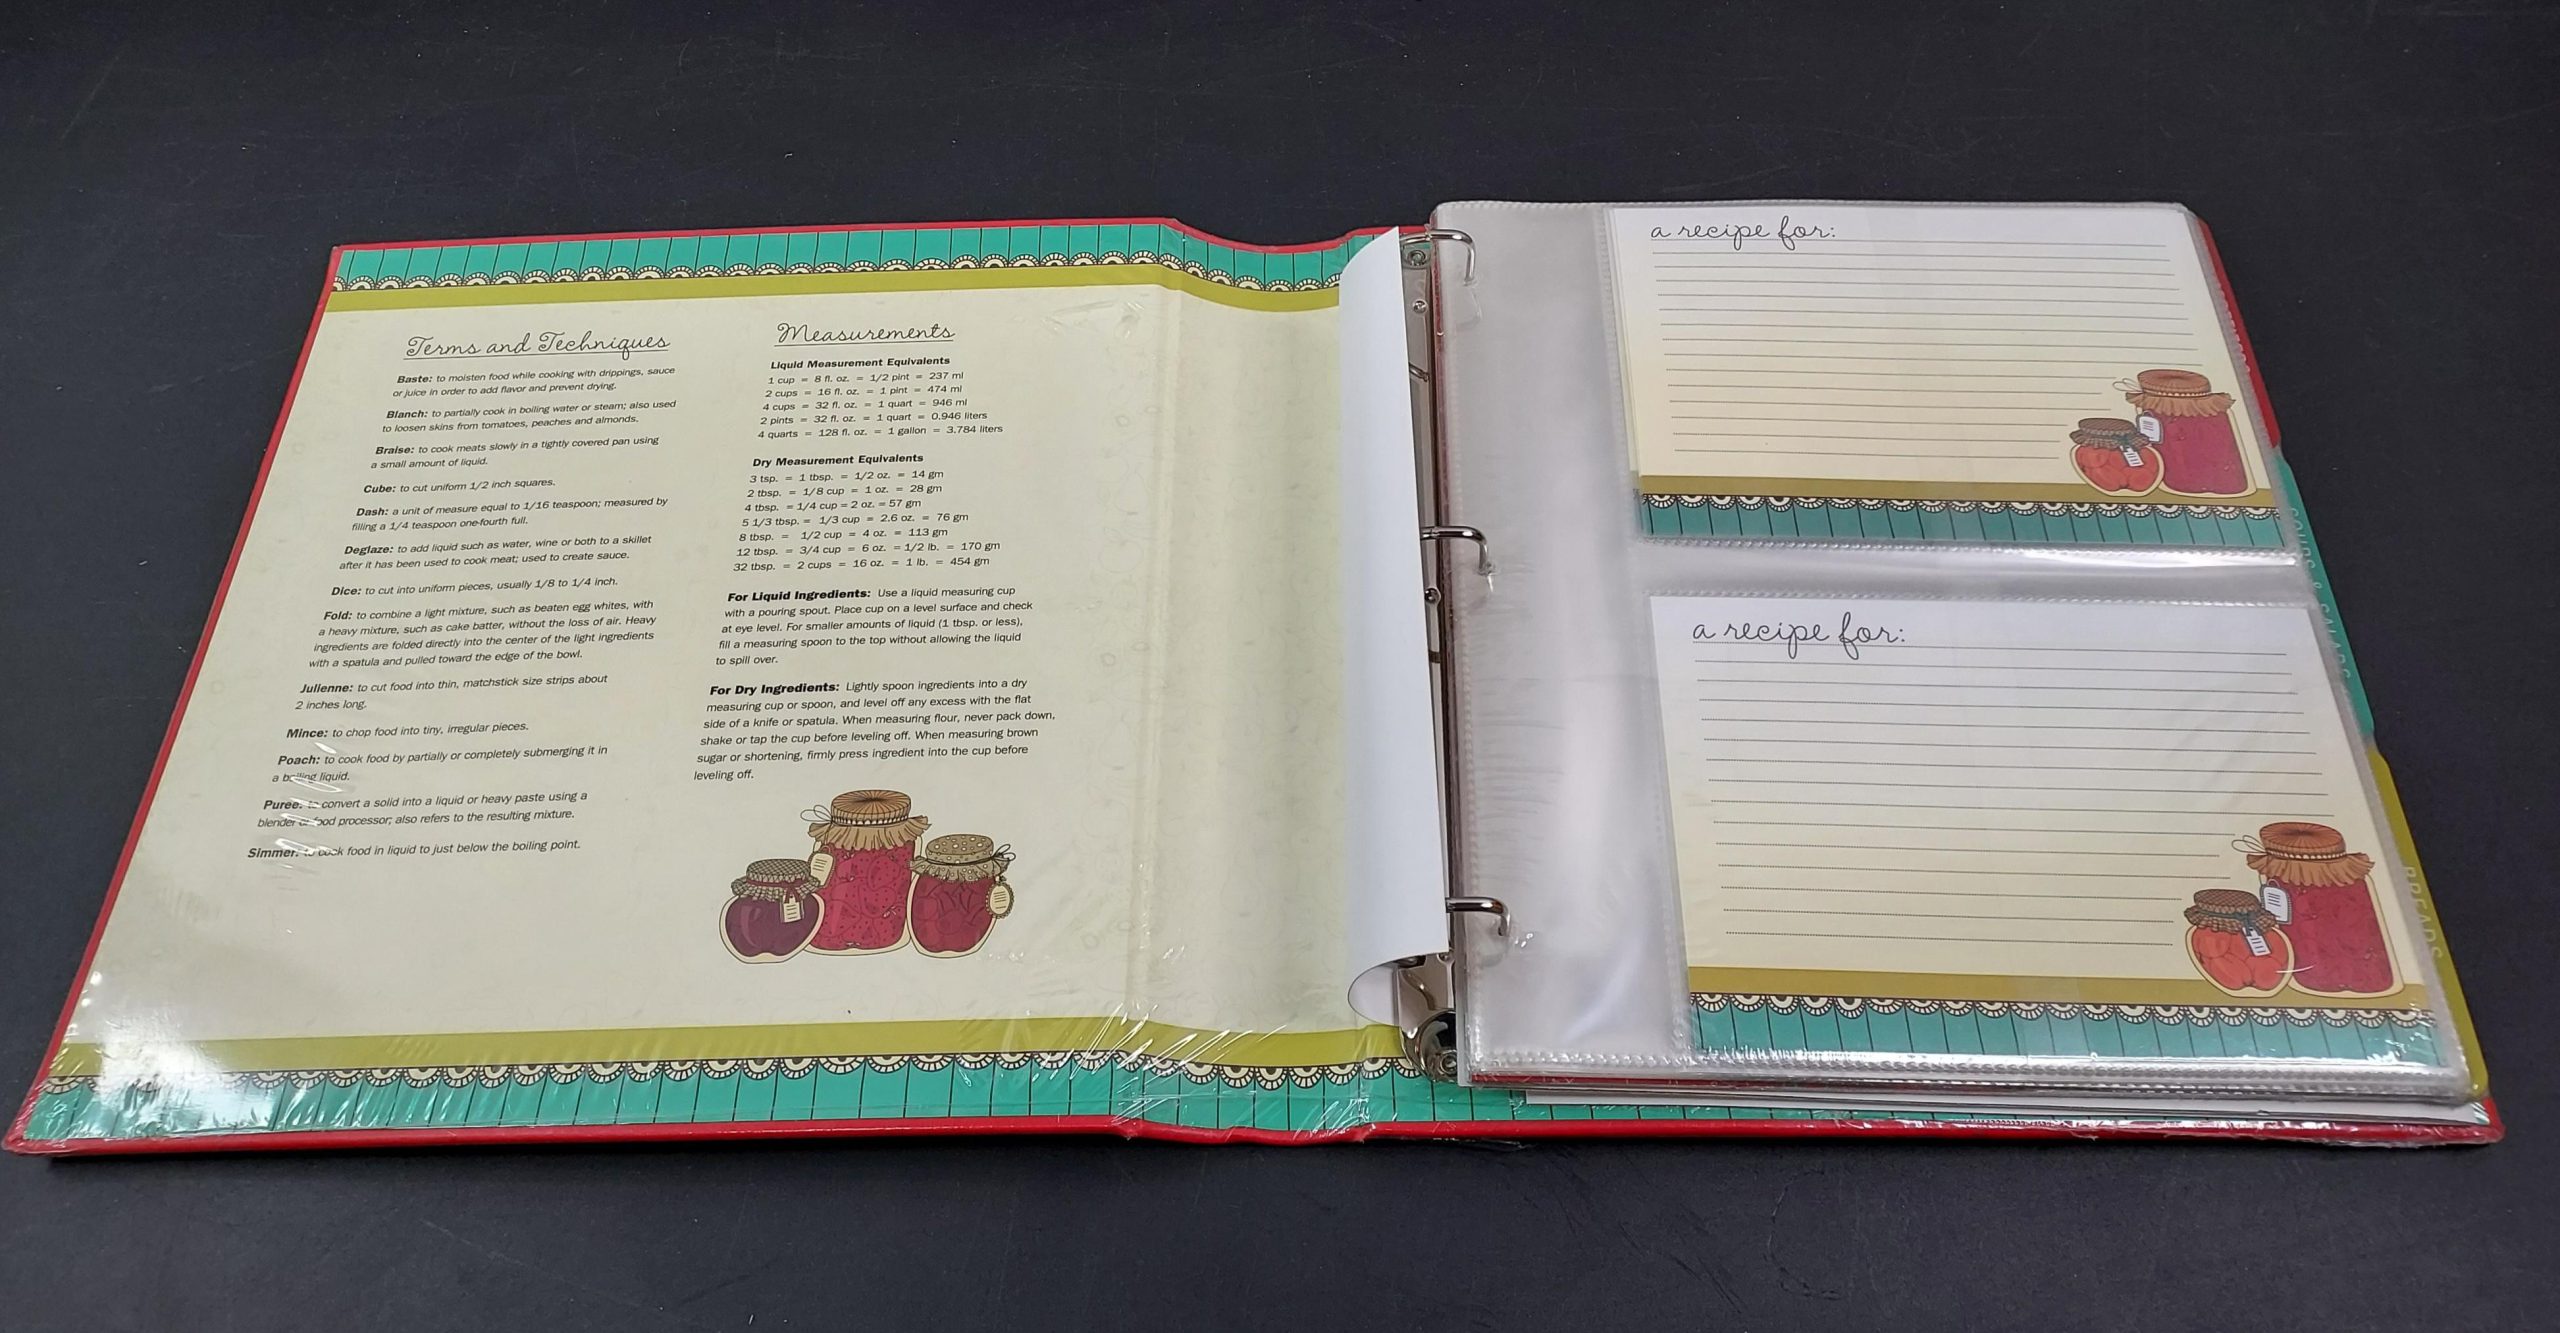 Terms and Techniques
Baste: to moisten food while cooking with drippings, sauce
or juice in order to add flavor and prevent drying.
Blanch: to partially cook in boiling water or steam; also used
to loosen skins from tomatoes, peaches and almonds.
Braise: to cook meats slowly in a tightly covered pan using
a small amount of liquid.
Cube: to cut uniform 1/2 inch squares.
Dash: a unit of measure equal to 1/16 teaspoon; measured by
filling a 1/4 teaspoon one-fourth full.
Deglaze: to add liquid such as water, wine or both to a skillet
after it has been used to cook meat; used to create sauce.
Dice: to cut into uniform pieces, usually 1/8 to 1/4 inch.
Fold: to combine a light mixture, such as beaten egg whites, with
a heavy mixture, such as cake batter, without the loss of air. Heavy
ingredients are folded directly into the center of the light ingredients
with a spatula and pulled toward the edge of the bowl.
Julienne: to cut food into thin, matchstick size strips about
2 inches long.
Mince: to chop food into tiny, irregular pieces.
Poach: to cook food by partially or completely submerging it in
a boiling liquid.
Puree: to convert a solid into a liquid or heavy paste using a
blender or food processor; also refers to the resulting mixture.
Simmer: to cook food in liquid to just below the boiling point.
Measurements
Liquid Measurement Equivalents
1 cup = 8 fl. oz. = 1/2 pint = 237 ml
2 cups = 16 fl. oz. = 1 pint = 474 ml
4 cups = 32 fl. oz. = 1 quart = 946 ml
2 pints = 32 fl. oz. = 1 quart = 0.946 liters
4 quarts = 128 fl. oz. = 1 gallon = 3.784 liters
Dry Measurement Equivalents
3 tsp. = 1 tbsp. = 1/2 oz. = 14 gm
2 tbsp. = 1/8 cup = 1 oz. = 28 gm
4 tbsp. = 1/4 cup = 2 oz. = 57 gm
5 1/3 tbsp. = 1/3 cup = 2.6 oz. = 76 gm
8 tbsp. = 1/2 cup = 4 oz. = 113 gm
12 tbsp. = 3/4 cup = 6 oz. = 1/2 lb. = 170 gm
32 tbsp. = 2 cups = 16 oz. = 1 lb. = 454 gm
For Liquid Ingredients: Use a liquid measuring cup
with a pouring spout. Place cup on a level surface and check
at eye level. For smaller amounts of liquid (1 tbsp. or less),
fill a measuring spoon to the top without allowing the liquid
to spill over.
For Dry Ingredients: Lightly spoon ingredients into a dry
measuring cup or spoon, and level off any excess with the flat
side of a knife or spatula. When measuring flour, never pack down,
shake or tap the cup before leveling off. When measuring brown
sugar or shortening, firmly press ingredient into the cup before
leveling off.
a recipe for:
a recipe for:
SOUPS & SALADS
BREADS